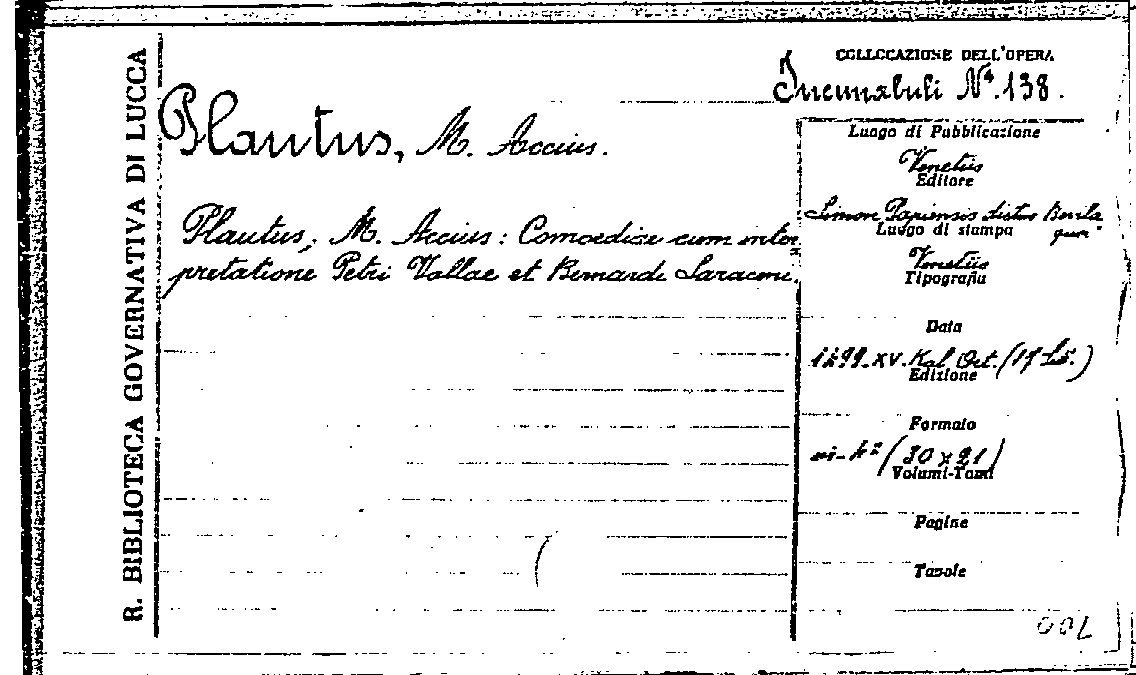 R. BIBLIOTECA GOVERNATIVA DI LUCCA
COLLOCAZIONE DELL'OPERA
Incunabuli Nº. 138.
Plautus, M. Accius.
Plautus, M. Accius: Comoediae cum inter
pretatione Petri Vallae et Bernardi Saraceni.
Luogo di Pubblicazione
Venetiis
Editore
Simon Papiensis dictus Bevila
qua
Luogo di stampa
Venetiis
Tipografia
Data
1499. XV. Kal. Oct. (17 Set.)
Edizione
Formato
(30 x 21)
Volumi-Tomi
Pagine
Tavole
700